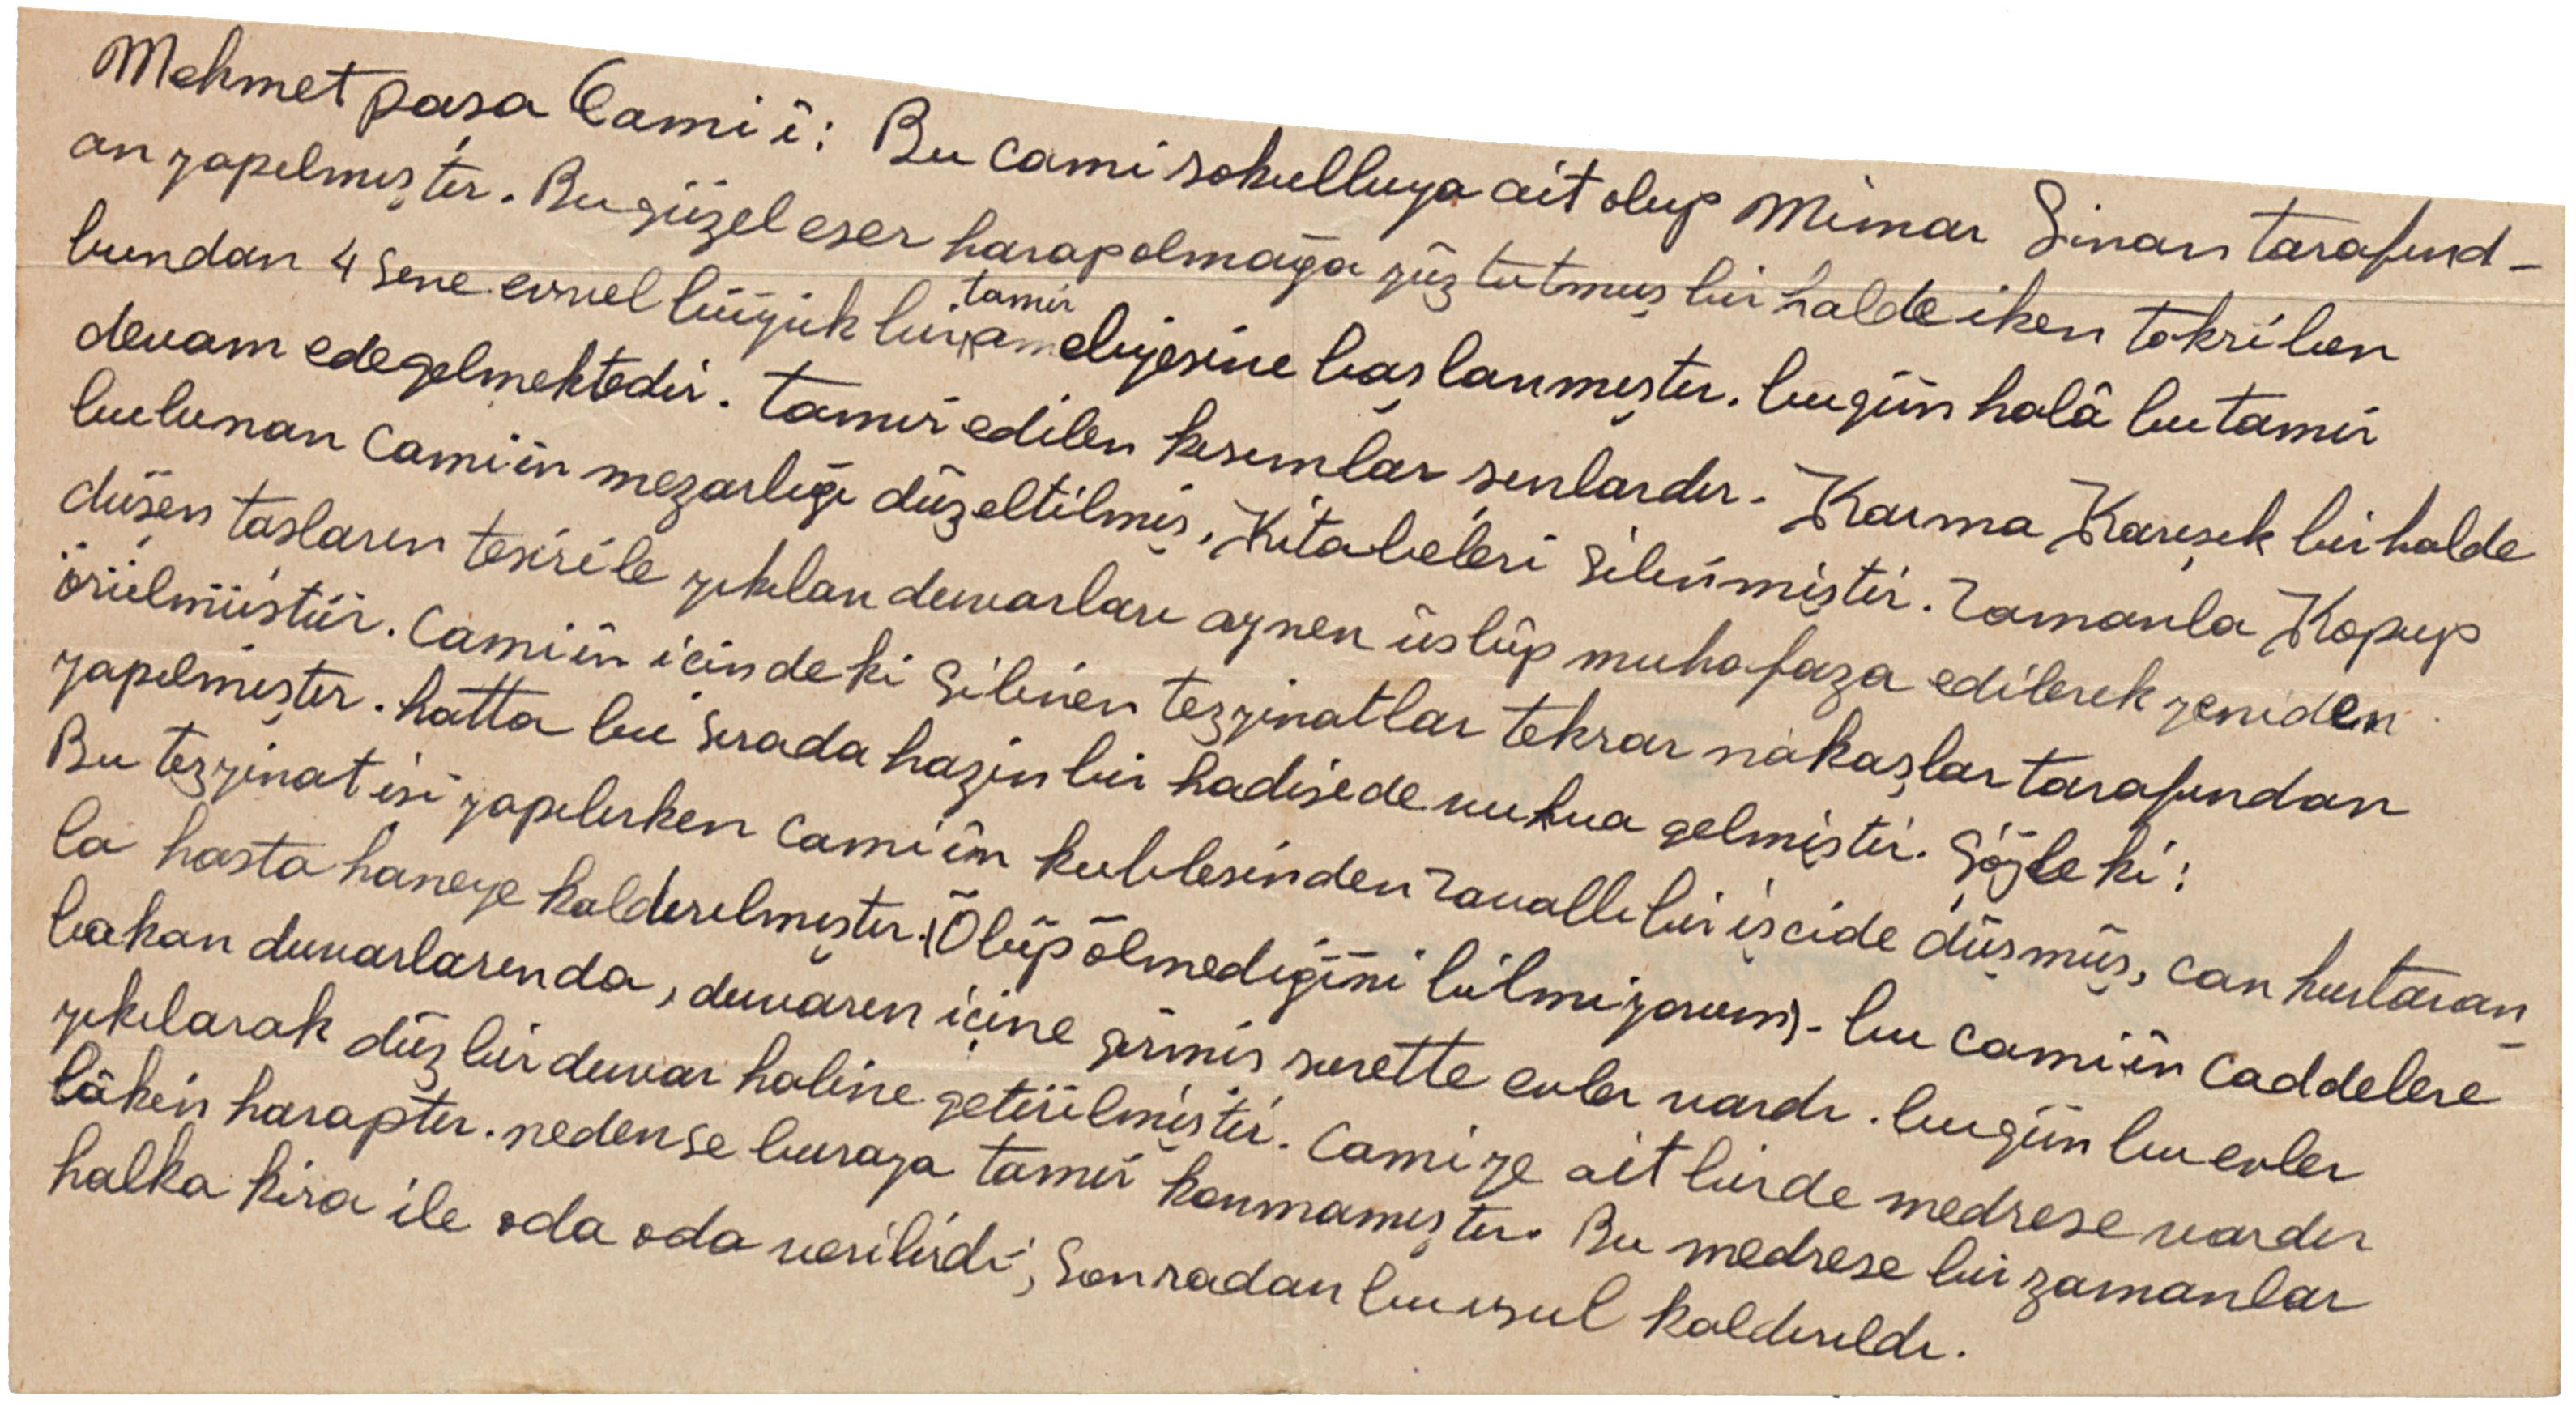 Mehmet paşa Camii: Bu cami sokulluya ait olup Mimar Sinan tarafınd-
an yapılmıştır. Bu güzel eser harap olmağa yüz tutmuş bir halde iken takriben
bundan 4 sene evvel büyük bir tamir ameliyesine başlanmıştır. bugün halâ bu tamir
devam edegelmektedir. Tamir edilen kısımlar şunlardır. Karma Karışık bir halde
bulunan Camiin mezarlığı düzeltilmiş, Kitabeleri silinmiştir. Zamanla Kopup
düşen taşların tesirile yıkılan duvarları aynen üslüp muhafaza edilerek yeniden
örülmüştür. Camiin içindeki silinen tezyinatlar tekrar nakaşlar tarafından
yapılmıştır. hatta bu sırada hazin bir hadisede vukua gelmiştir. Şöyle ki:
Bu tezyinat işi yapılırken Camiin kubbesinden zavallı bir işcide düşmüş, can kurtaran-
la hasta haneye kaldırılmıştır. (Ölüp ölmediğini bilmiyorum). bu camiin Caddelere
bakan duvarlarında, duvarın içine girmiş surette evler vardı. bugün bu evler
yıkılarak düz bir duvar haline getirilmiştir. Camiye ait birde medrese vardır
lâkin haraptır. nedense buraya tamir konmamıştır. Bu medrese bir zamanlar
halka kira ile oda oda verilirdi, Sonradan bu usul kaldırıldı.